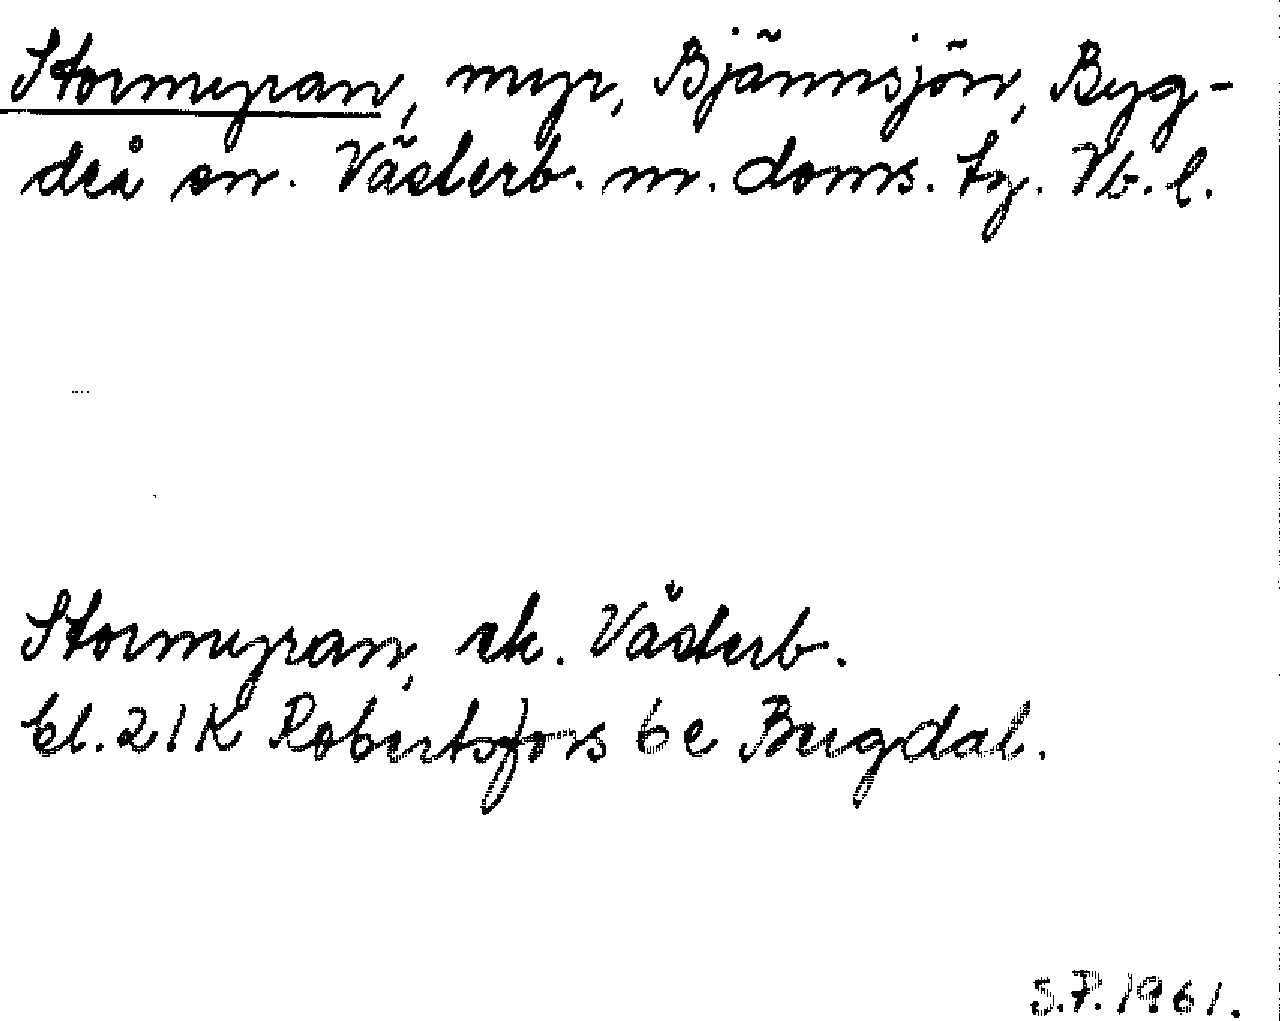 Stormyran, myr, Bjännsjön, Byg-
deå sn. Västerb. m. doms. tg. Vb. l.
Stormyran, ek. Västerb.
bl. 21K Robertsfors 6e Bygdal.
5.7.1961.